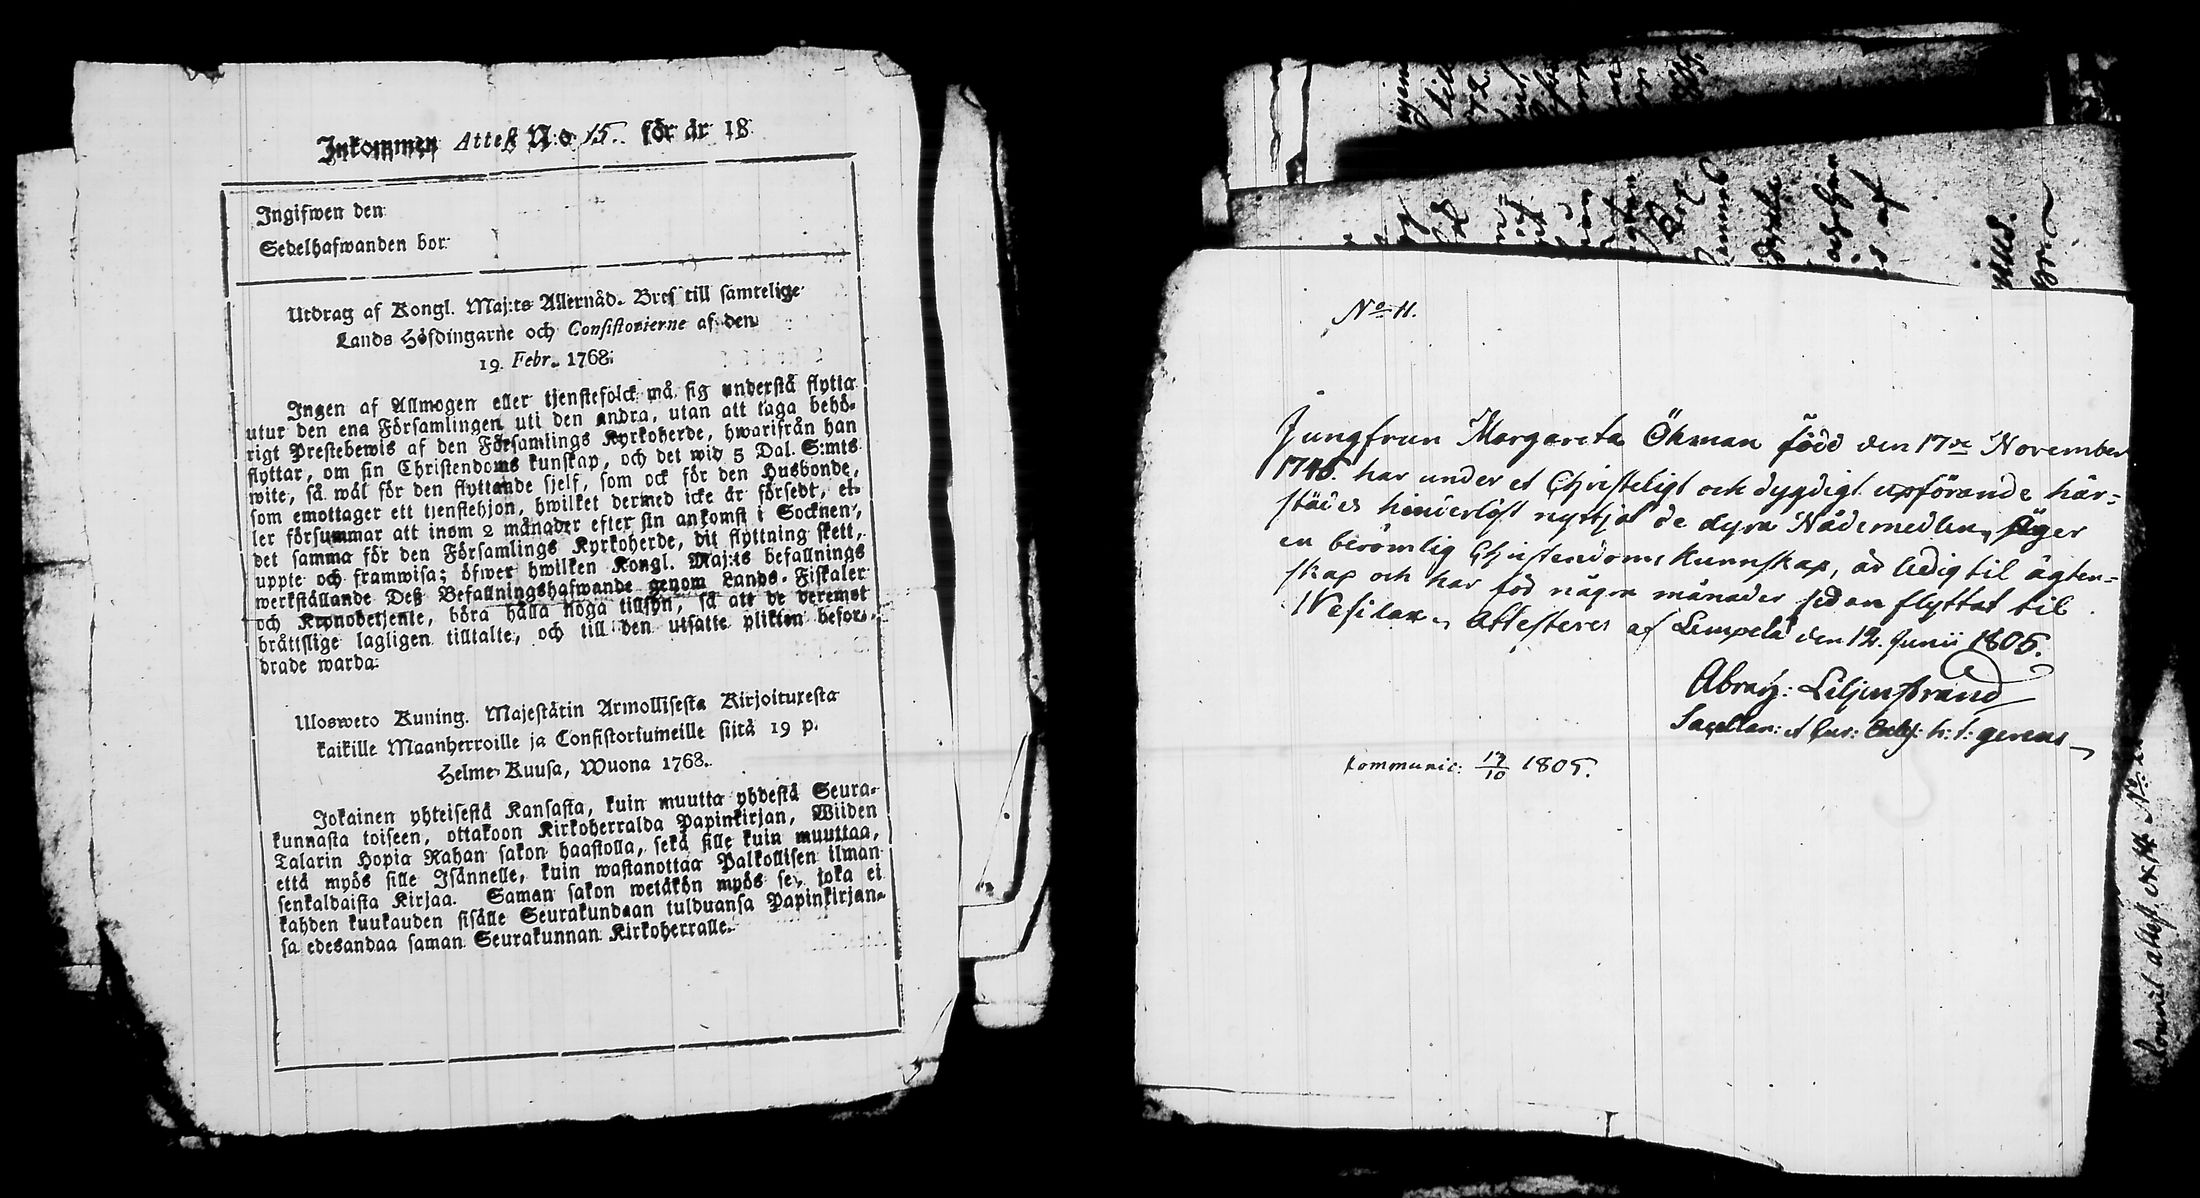 Inkommen Attest N:o 15. för år 18
Ingifwen den
Sedelhafwanden bor
Utdrag af Kongl. Maj:ts Allernåd. Bref till samtelige
Lands Höfdingarne och Consistorierne af den
19. Febr. 1768.
Ingen af Allmogen eller tjenstefolck må sig understå flytta
utur den ena Församlingen uti den andra, utan att taga behö-
rigt Prestebewis af den Församlings Kyrkoherde, hwarifrån han
flyttar, om sin Christendoms kunskap, och det wid 5 Dal. S:mts
wite, så wäl för den flyttande sjelf, som ock för den Husbonde,
som emottager ett tjenstehjon, hwilket dermed icke är försedt, el-
ler försummar att inom 2 månader efter sin ankomst i Socknen,
det samma för den Församlings Kyrkoherde, dit flyttning skett,
uppte och framwisa; öfwer hwilken Kongl. Maj:ts befallnings
werkställande Deß Befallningshafwande genom Lands-Fiskaler
och Kronobetjente, böra hålla noga tillsyn, så att de deremot
bråttslige lagligen tilltalte, och till den utsatte plikten befor-
drade warda.
Ulosweto Kuning. Majestätin Armollisesta Kirjoituxesta
kaikille Maanherroille ja Consistoriumeille siitä 19 p.
Helme-Kuusa, Wuona 1768.
Jokainen yhteisestä Kansasta, kuin muutta yhdestä Seura-
kunnasta toiseen, ottakoon Kirkoherralda Papinkirjan, Wiiden
Talarin Hopia Rahan sakon haastolla, sekä sille kuin muuttaa,
että myös sille Isännelle, kuin wastanottaa Palkollisen ilman
senkaldaista Kirjaa. Saman sakon wetäkön myös se, joka ei
kahden kuukauden sisälle Seurakundaan tulduansa Papinkirjan-
sa edesandaa saman Seurakunnan Kirkoherralle.
No 11.
Jungfrun Margareta Ökman född den 17de November
1745. har under et Christeligt och dygdigt upförande här-
städes hinderlöst nyttjat de dyra Nådemedlen, äger
en berömlig Christendoms kunnskap, är ledig til ägten-
skap och har för någre månader sedan flyttat til
Wesilax, Attesteres af Lempelä den 12. Junii 1805.
Abrah: Liljenstrand
Sacellan: et Cur: h: t: gerens
Kommunic: 13/10 1805.